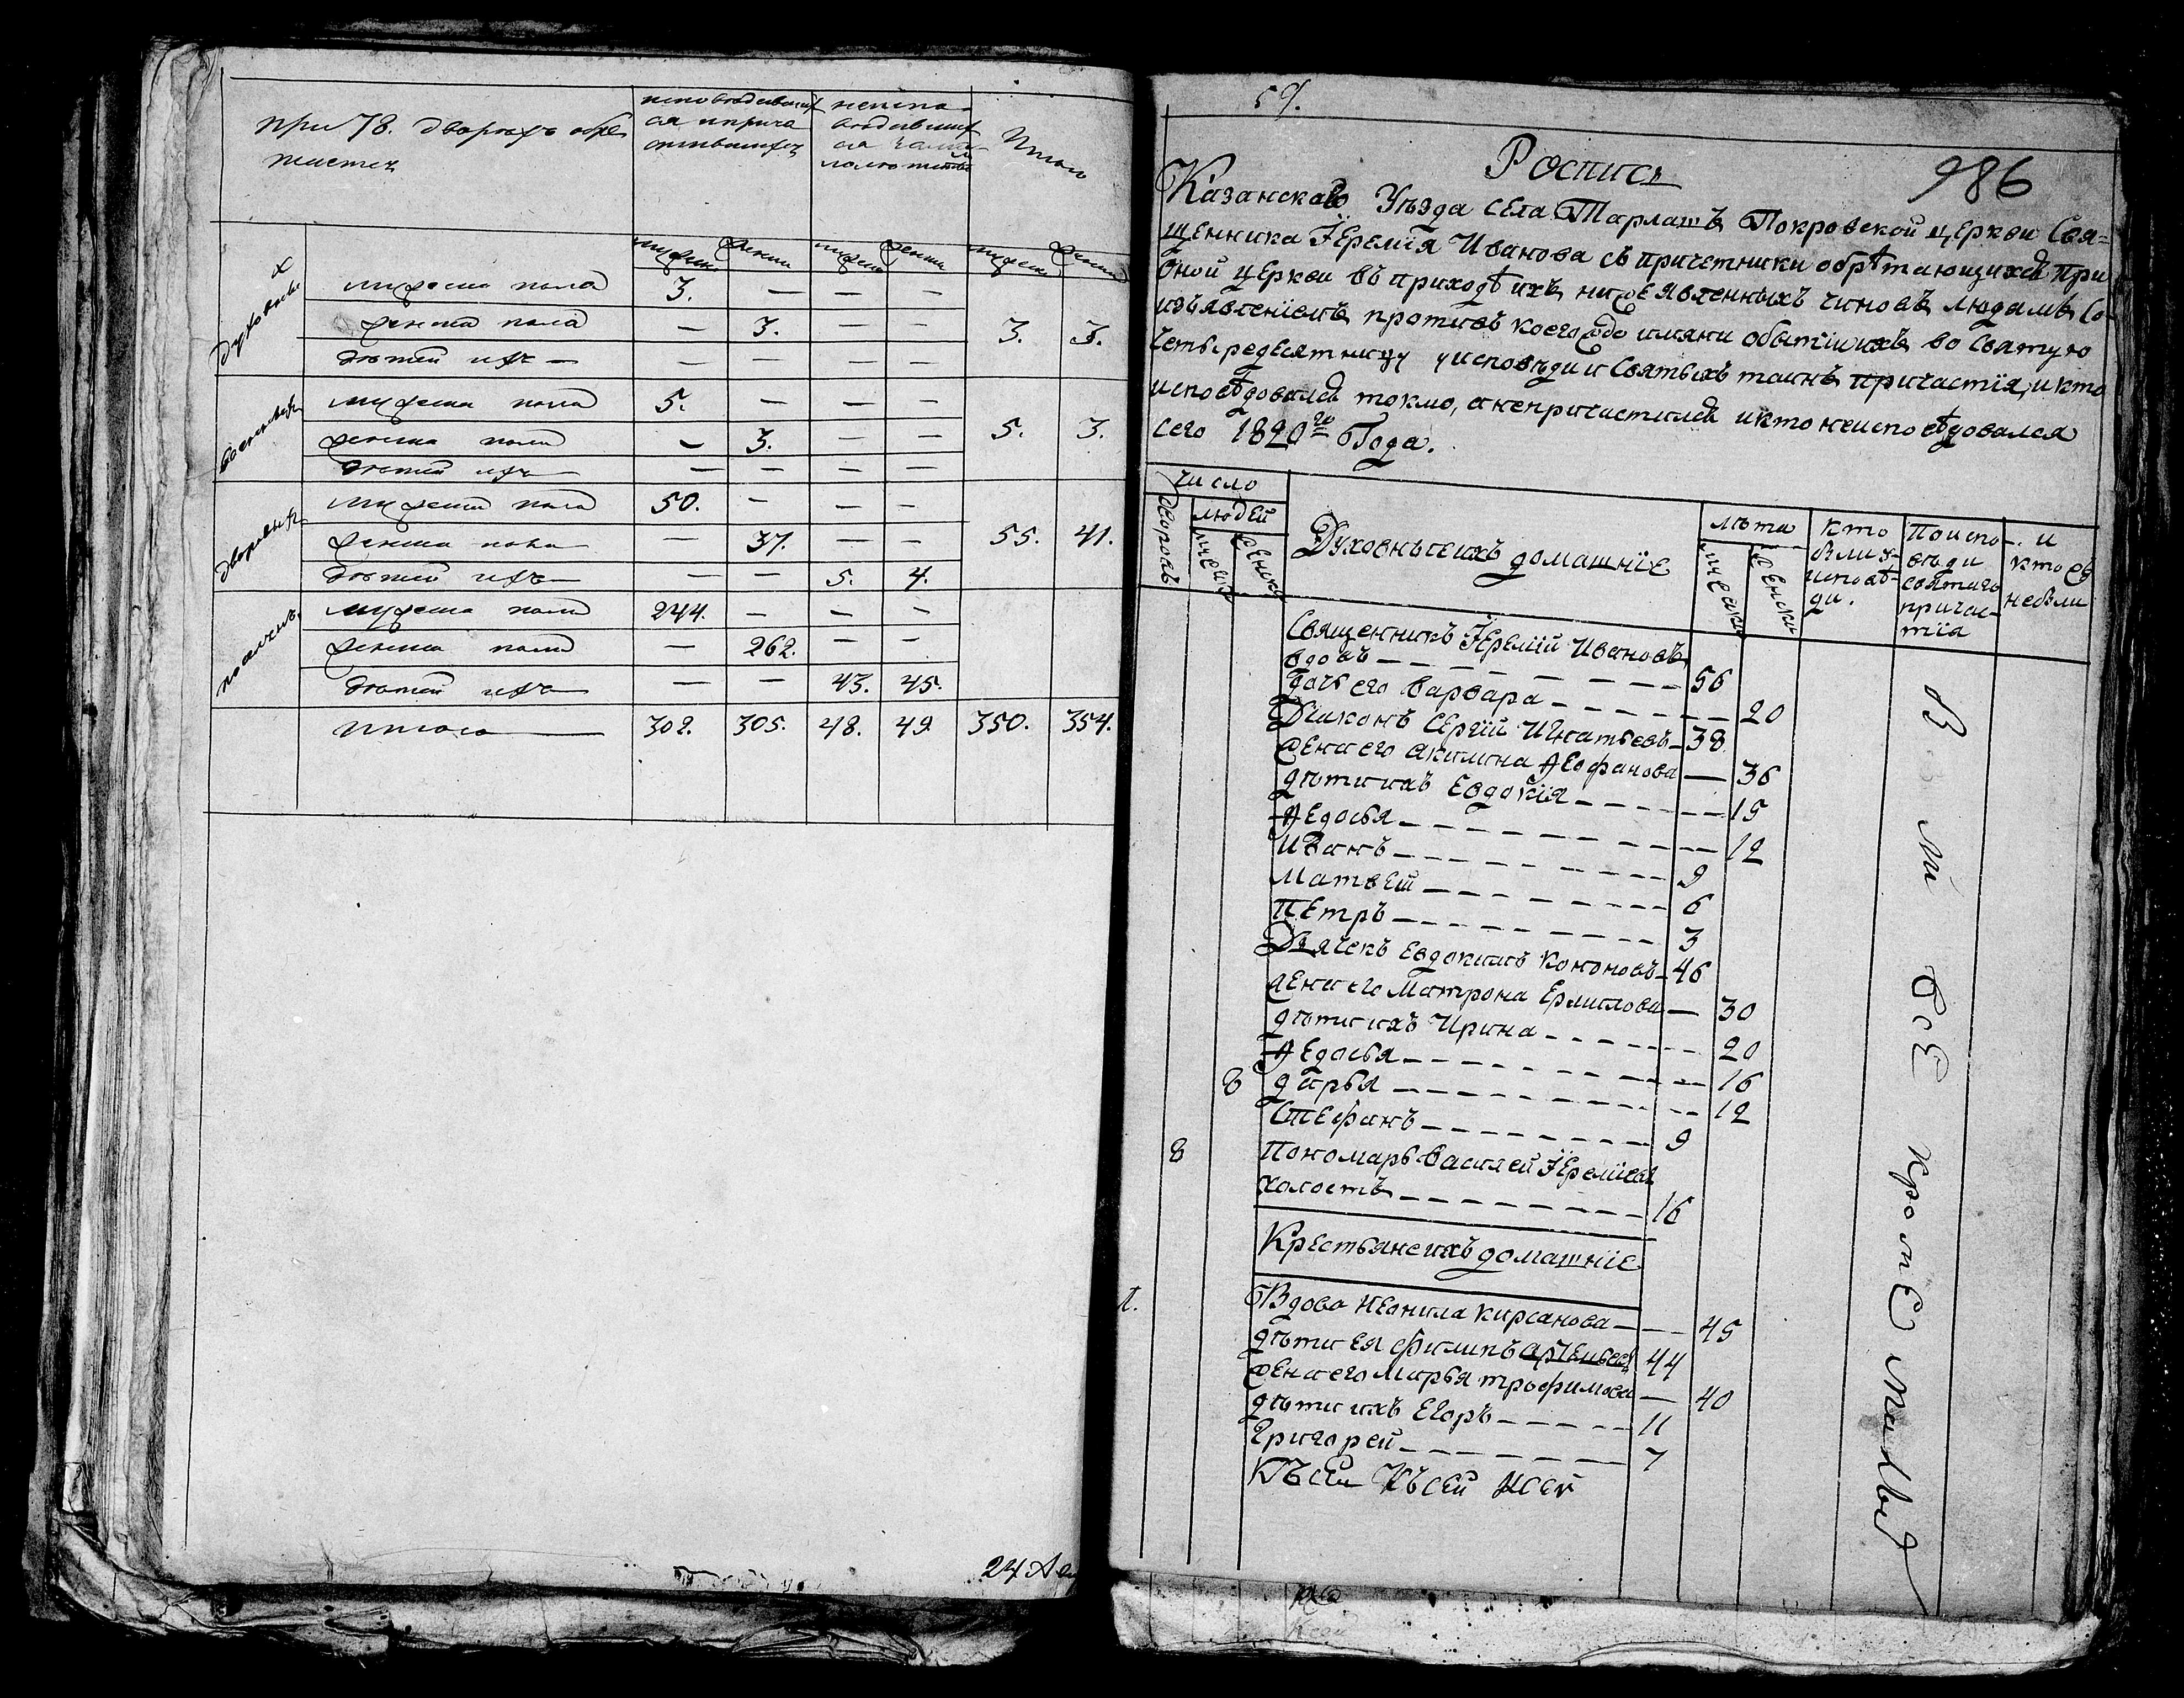 при 78. дворахъ обре
тается
исповедавших
ся и прича
стившихся
неиспо
ведавших
ся за мало
летством
Итого
мужеска женска мужеска женска мужеска женска
духовных
мужеска пола 3. — — —
женска пола — 3. — — 3. 3.
детей ихъ — — — — —
военных
мужеска пола 5. — — —
женска пола — 3. — — 5. 3.
детей ихъ — — — — —
дворовых
мужеска пола 50. — — —
женска пола — 37. — — 55. 41.
детей ихъ — — 5. 4.
мужеска пола 244. — — —
женска пола — 262. — —
детей ихъ — — 43. 45.
итого — 302. 305. 48. 49. 350. 354.
24
59.
Роспись
986
Казанскаго Уѣзда села Тарлашъ Покровской церкви Свя=
щенника Їеремїя Иванова съ причетники обрѣтающихся при
оной церкви въ приходѣ ихъ нижеявленныхъ чиновъ людямъ со
изъявленїемъ противъ коегождо имяни о бытїи ихъ во святую
четыредесятницу у исповѣди и Святыхъ таинъ причастїя, и кто
исповѣдовался токмо, а непричастился и кто неисповѣдовался
сего 1820го Года.
число
дворовъ
людей
мужеска
женска
Духовные и ихъ домашнїе
лѣта
мужеска
женска
кто
былъ у
исповѣ-
ди.
По испо-
вѣди
святаго
причас-
тїя
и
кто
небыли
Священникъ Їеремїй Ивановъ
вдовъ — — — — — 56
дочь его Варвара — — — — 20
Дьяконъ Сергїй Игнатьевъ — 38
жена его Акилина Ѳеофанова — 36
дѣти ихъ Евдокїя — — — — 15
Ѳедосья — — — — — 12
Иванъ — — — — — 9
Матвей — — — — — 6
Петръ — — — — — 3
Дьячекъ Евдокимъ Кононовъ — 46
жена его Матрона Ермилова — 30
дѣти ихъ Ирина — — — — 20
Ѳедосья — — — — — 16
8 дарья — — — — — 12
Стефанъ — — — — — 9
8 Пономарь Василей Їеремїевъ
холостъ — — — — — 16
Крестьяне и ихъ домашнїе
1. Вдова Неонила Кирсанова — 45
дѣти ея Филипъ 44
жена его Марья трофимова — 40
дѣти ихъ Егоръ — — — — 11
Григорей — — — — — 7
Къ сей Къ сей
Всѣ кроме